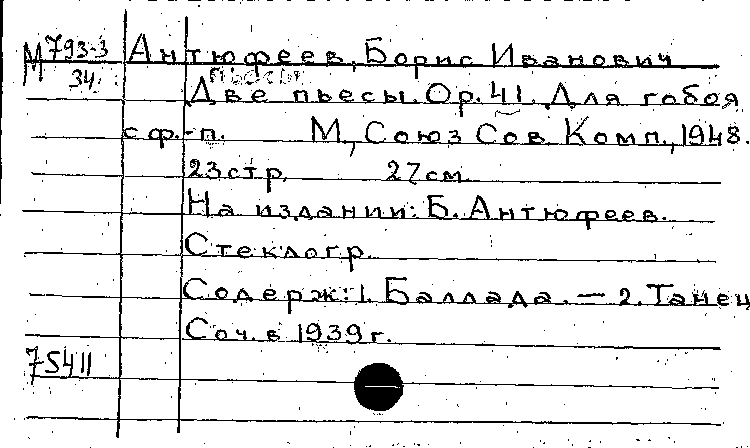 М 793-3 Антюфеев, Борис Иванович
34 пьесы
Две пьесы. Ор. 41. Для гобоя
с ф.-п. М., Союз Сов. Комп., 1948.
23 стр. 27 см.
На издании: Б. Антюфеев.
Стеклогр.
Содерж: 1. Баллада. — 2. Танец
Соч. в 1939 г.
75411